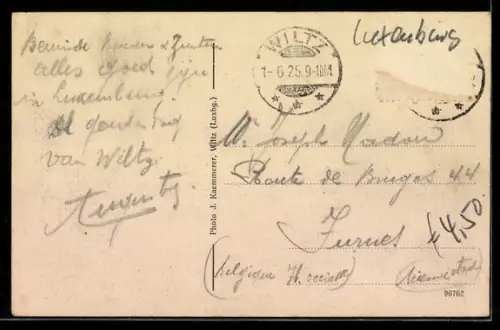 Luxemburg
WILTZ
1-6 25.9-10M
Beminde Broeder & Zuster
alles goed zijn
in Luxemburg.
goeden dag
van Wiltz
Mr Joseph
Route de Bruges 44
Furnes
(Belgique Fl. occid.)
£4.50
Photo J. Kaemmerer, Wiltz (Luxbg.)
96762